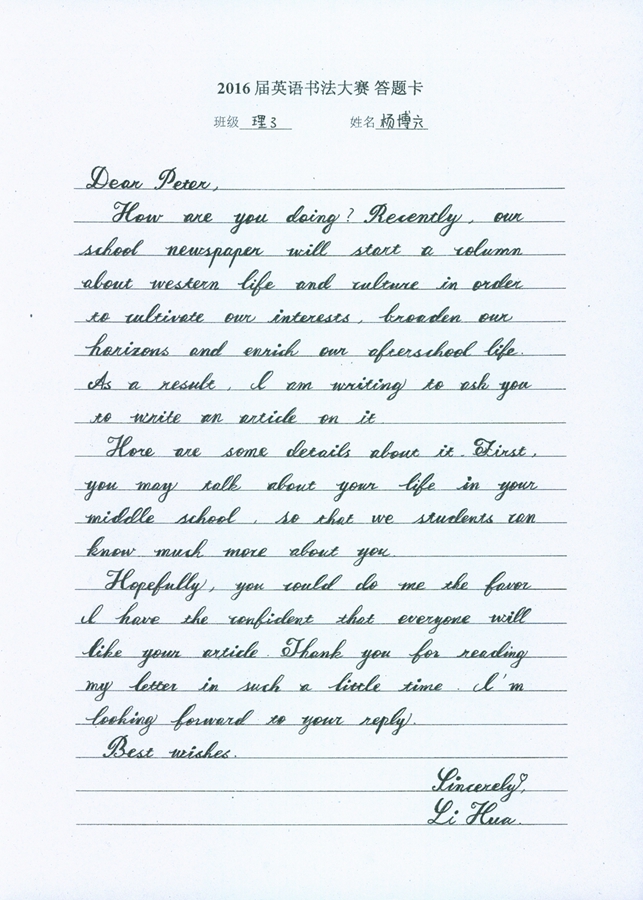 2016 届英语书法大赛 答题卡
班级 理3 姓名 杨博文
Dear Peter,
How are you doing? Recently, our
school newspaper will start a column
about western life and culture in order
to cultivate our interests, broaden our
horizons and enrich our afterschool life.
As a result, I am writing to ask you
to write an article on it.
Here are some details about it. First,
you may talk about your life in your
middle school, so that we students can
know much more about you.
Hopefully, you could do me the favor
I have the confident that everyone will
like your article. Thank you for reading
my letter in such a little time. I'm
looking forward to your reply.
Best wishes.
Sincerely,
Li Hua.